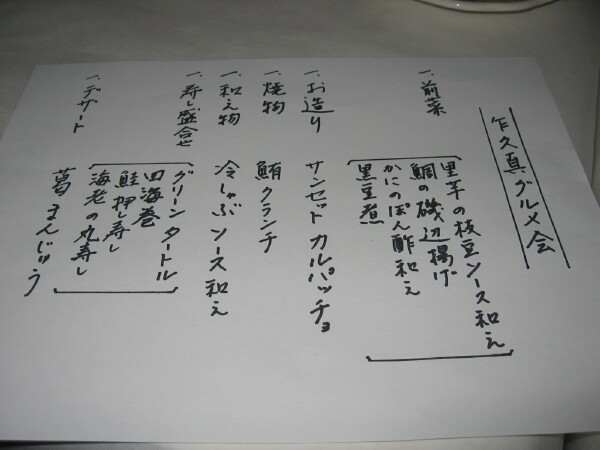 乍久真グルメ会
一、前菜
里芋の枝豆ソース和え
鯛の磯辺揚げ
かにのぽん酢和え
黒豆煮
一、お造り
サンセットカルパッチョ
一、焼物
鮪クランチ
一、和え物
冷しゃぶソース和え
一、寿し盛合せ
グリーンタートル
四海巻
鮭押し寿し
海老の丸寿し
一、デザート
葛まんじゅう